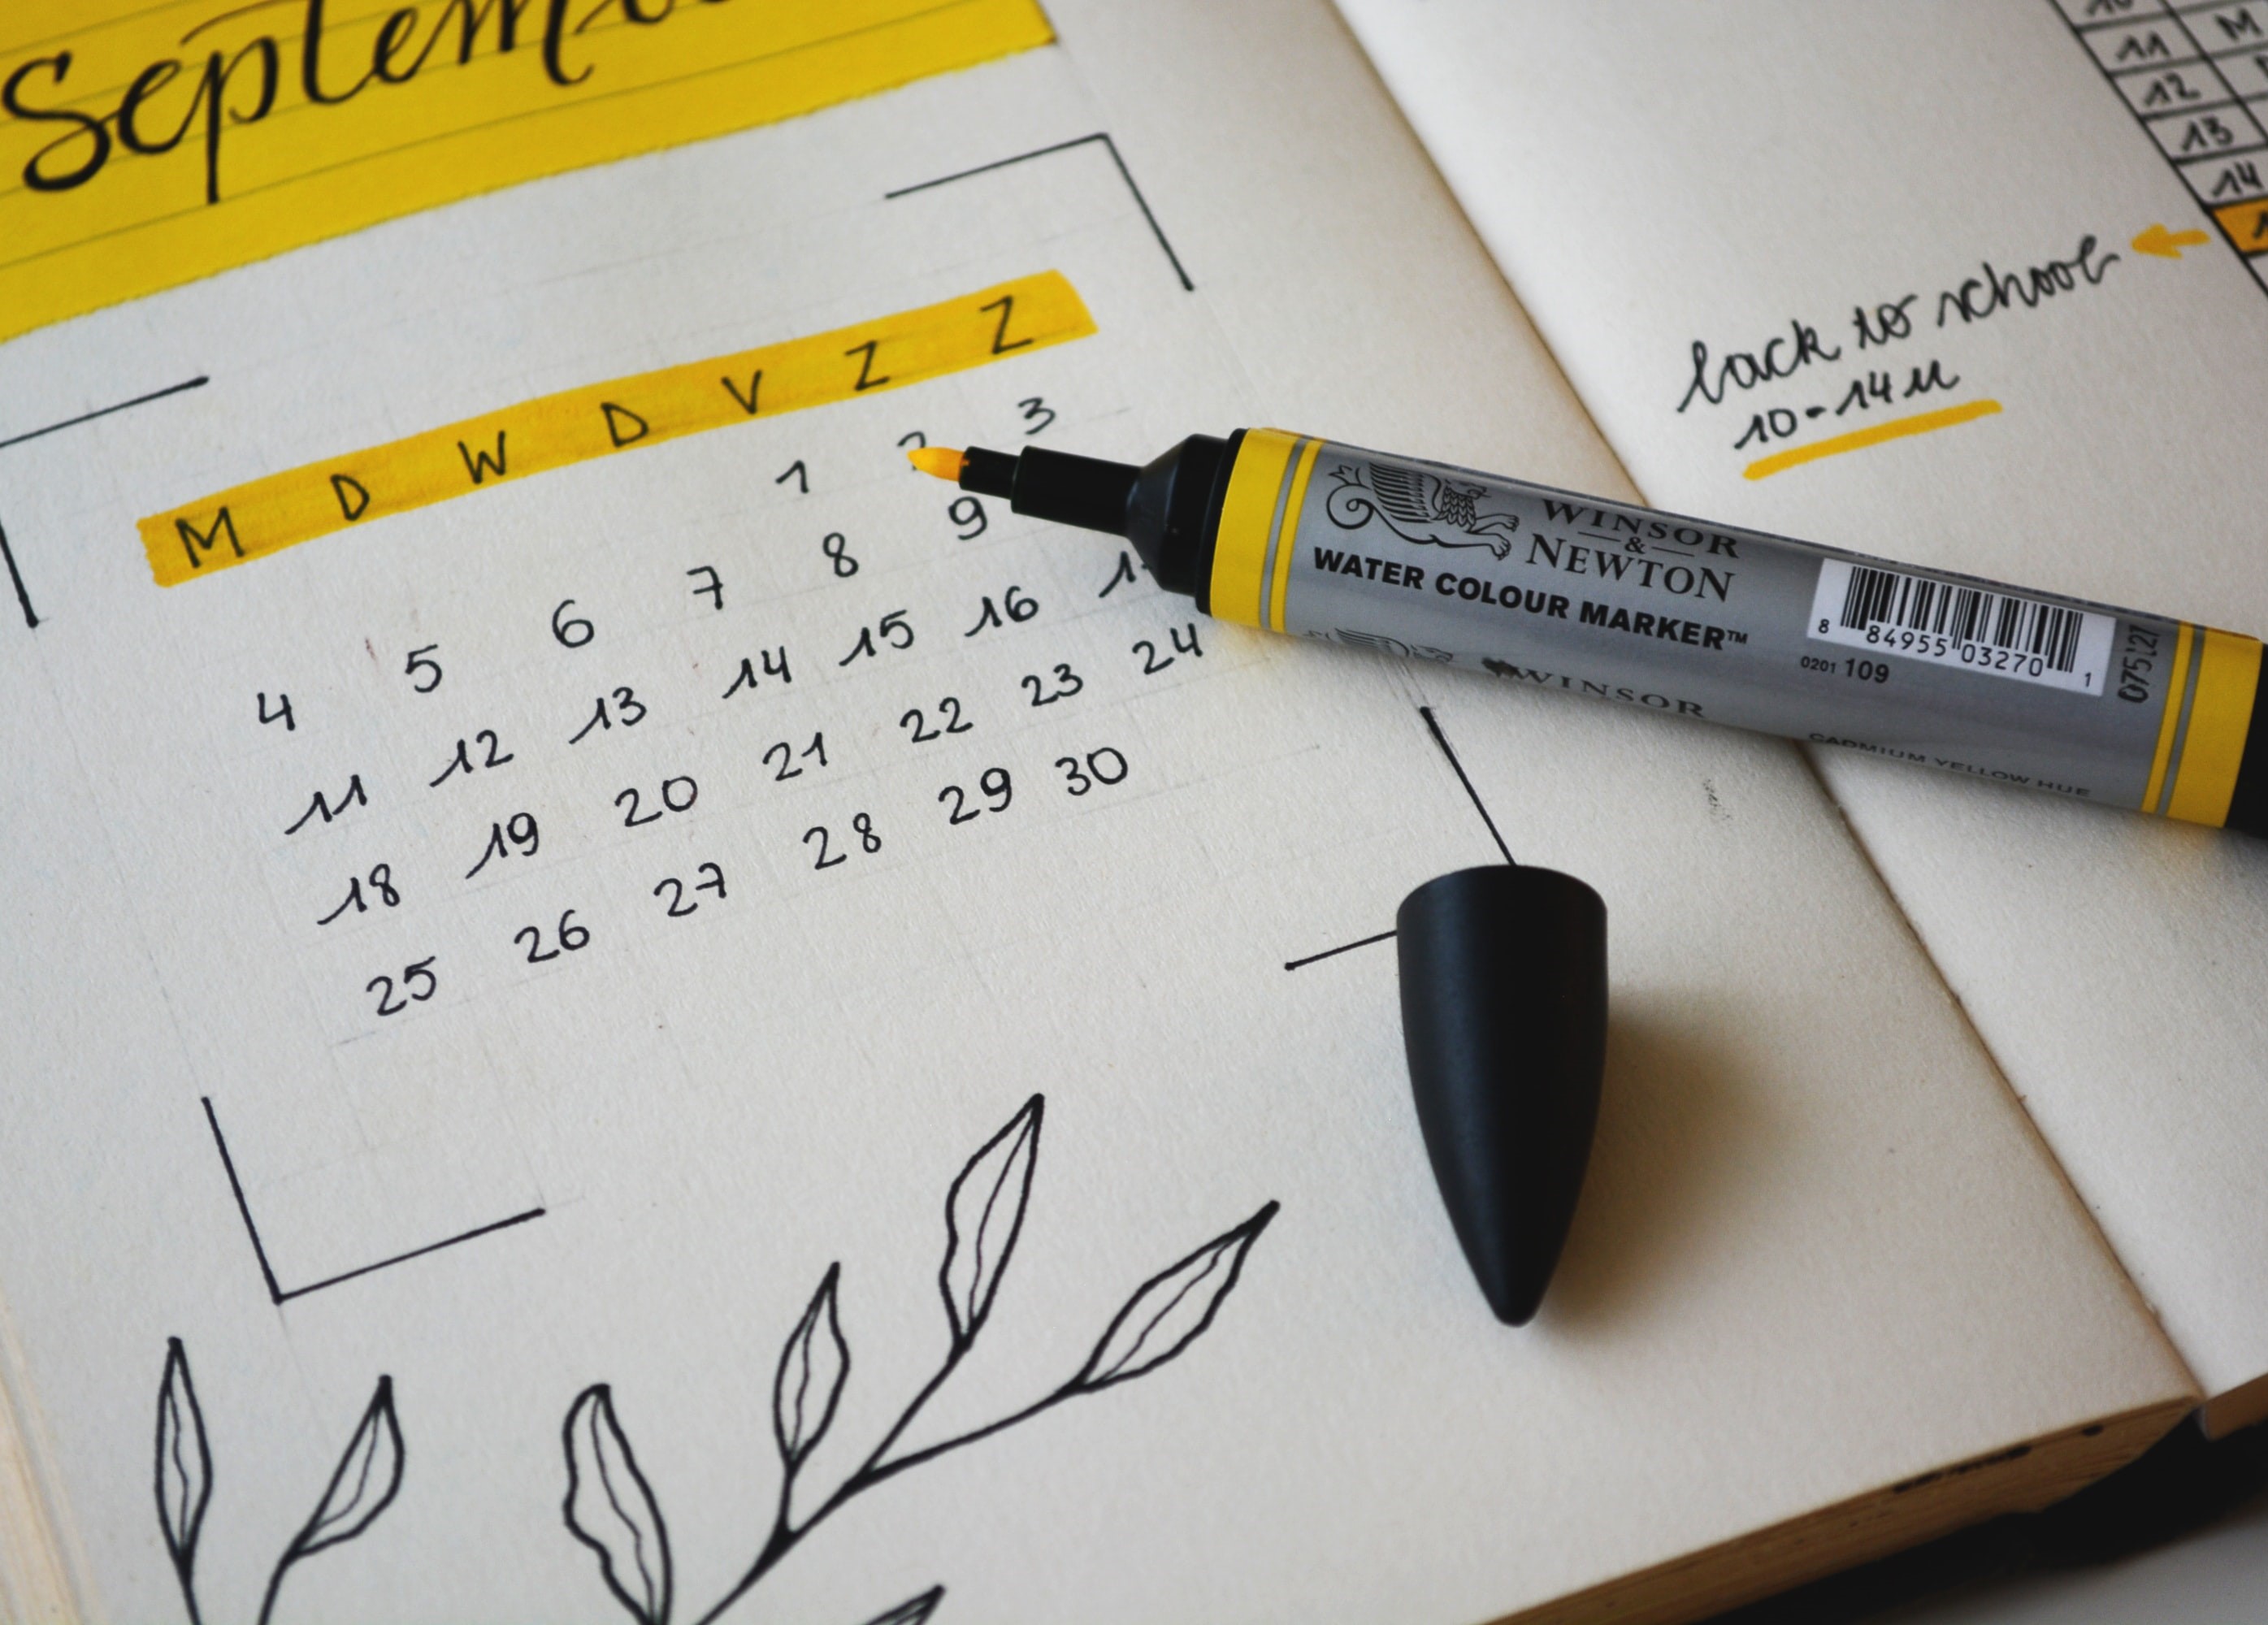 M D W D V Z Z
1 2 3
4 5 6 7 8 9
11 12 13 14 15 16
18 19 20 21 22 23 24
25 26 27 28 29 30
10 M
11
12
13
14
back to school
10-14u
WINSOR
&
NEWTON
WATER COLOUR MARKER™
8 84955 03270 1
0201 109
075127
WINSOR
CADMIUM YELLOW HUE